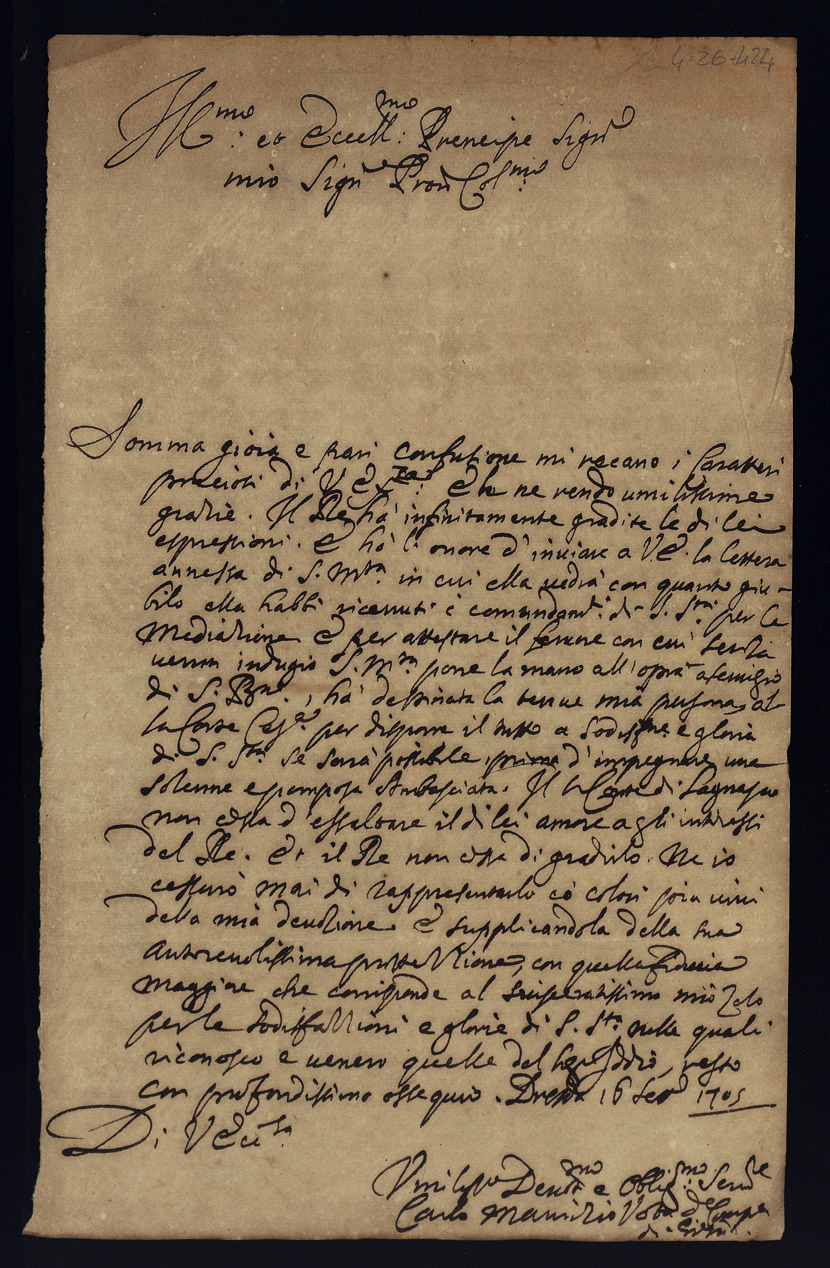 4-26-424
Ill.mo et Eccell.mo Prencipe Sig.r
mio Sig.r e Pron Col.mo
Somma gioia e pari confusione mi recano i Caratteri
preciosi di V. Ecc.za: E ne rendo umilissime
grazie. Il Rè hà infinitamente gradite le di lei
espressioni. E hò l'onore d'inviare a V.E. la lettera
annessa di S. M.tà in cui ella vedrà con quanto giu-
bilo ella habbi ricevuti i comandam.ti di S. S.tà per la
Mediazione E per attestare il fervore con cui senza
verun indugio S. M.tà pone la mano all'opra a servigio
di S. B.ne, hà destinata la tenue mia persona al
la Corte Ces.a per disporre il tutto a sodisf.ne e gloria
di S. S.tà se sarà possibile prima d'impegnare una
solenne e pomposa Ambasciata. Il Conte di Lagnasco
non cessa d'essaltare il di lei amore agli interessi
del Rè. Et il Rè non cessa di gradirlo. Ne io
cesserò mai di rappresentarlo co' colori più vivi
della mia devozione E supplicandola della sua
autorevolissima protettione, con quella fiducia
maggiore che corrisponde al svisceratissimo mio Zelo
per le sodisfazzioni e glorie di S. S.tà nelle quali
riconosco e venero quelle del Iddio, resto
con profondissimo ossequio. Dresda 16 1705
Di V. Ecc.za
Umiliss.o Devot.mo e Oblig.mo Serv.re
Carlo Maurizio Vota d. Comp.a
di Giesù.